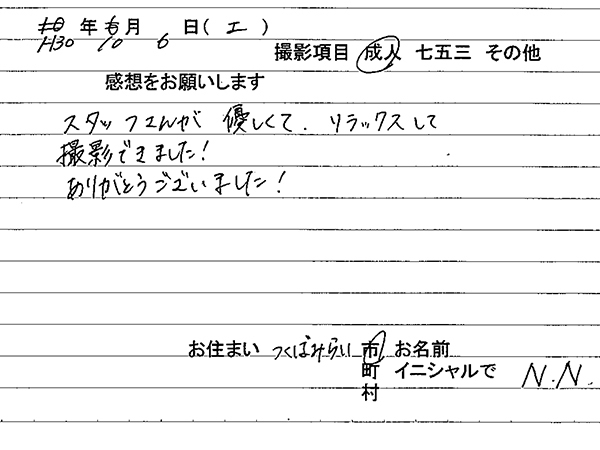 H30 年 10 月 6 日 ( 土 )
撮影項目 成人 七五三 その他
感想をお願いします
スタッフさんが 優しくて、リラックスして
撮影できました!
ありがとうございました!
お住まい つくばみらい 市 お名前
町 イニシャルで N.N.
村